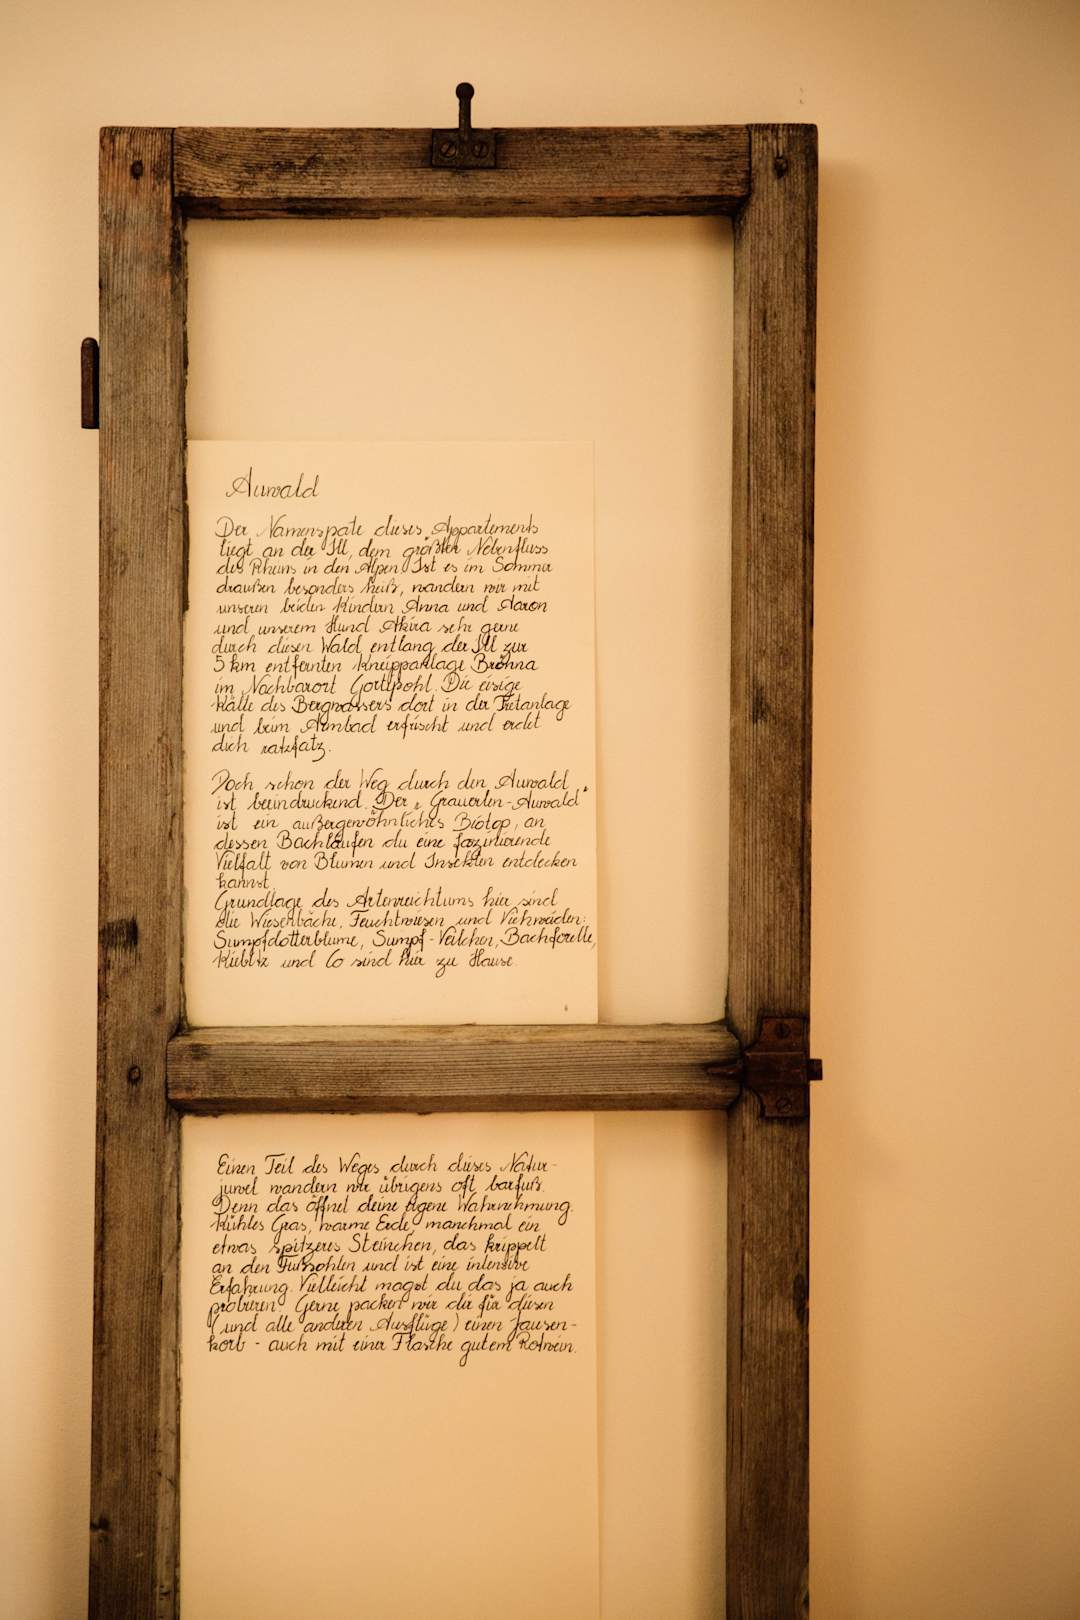 Auwald
Der Namenspate dieses Appartements
liegt an der Ill, dem größten Nebenfluss
des Rheins in den Alpen. Ist es im Sommer
draußen besonders heiß, wandern wir mit
unseren beiden Kindern Anna und Aaron
und unserem Hund Akira sehr gerne
durch diesen Wald entlang der Ill zur
5 km entfernten Kneippanlage Bröhna
im Nachbarort Gortipohl. Die eisige
Kälte des Bergwassers dort in der Tretanlage
und beim Armbad erfrischt und erdet
dich ratzfatz.
Doch schon der Weg durch den Auwald
ist beeindruckend. Der „Grauerlen-Auwald"
ist ein außergewöhnliches Biotop, an
dessen Bachläufen du eine faszinierende
Vielfalt von Blumen und Insekten entdecken
kannst.
Grundlage des Artenreichtums hier sind
die Wiesenbäche, Feuchtwiesen und Viehweiden:
Sumpfdotterblume, Sumpf-Veilchen, Bachforelle,
Kiebitz und Co sind hier zu Hause.
Einen Teil des Weges durch dieses Natur-
juwel wandern wir übrigens oft barfuß.
Denn das öffnet deine eigene Wahrnehmung.
Kühles Gras, warme Erde, manchmal ein
etwas spitzeres Steinchen, das krippelt
an den Fußsohlen und ist eine intensive
Erfahrung. Vielleicht magst du das ja auch
probieren? Gerne packen wir dir für diesen
(und alle anderen Ausflüge) einen Jausen-
korb - auch mit einer Flasche gutem Rotwein.